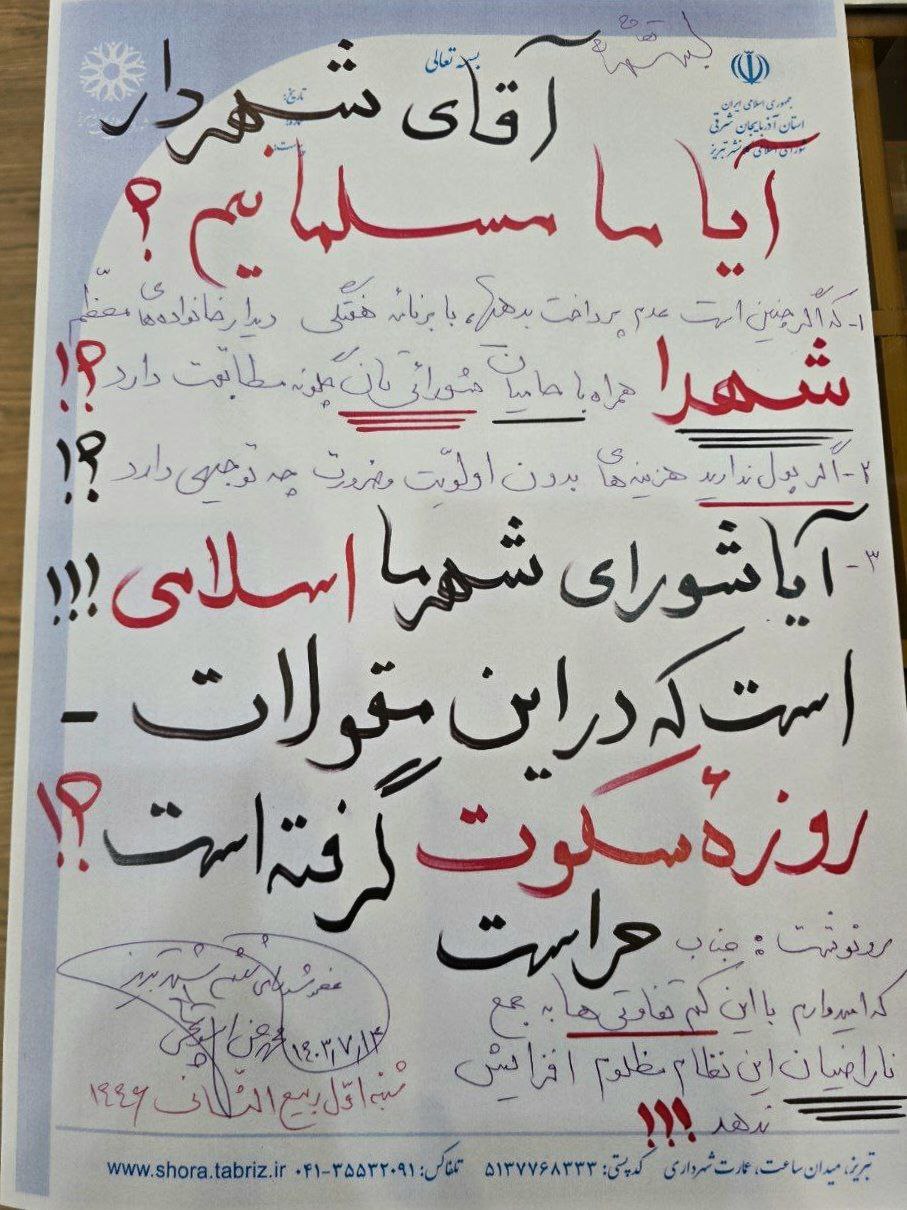 بسمه تعالی
جمهوری اسلامی ایران
استان آذربایجان شرقی
شورای اسلامی کلانشهر تبریز
تاریخ:
آقای شهردار
آیا ما مسلمانیم ؟
۱- که اگر چنین است عدم پرداخت بدهیها، با برنامه هفتگی دیدار خانواده های معظّم
شهدا همراه با حامیان شورائی تان چگونه مطابقت دارد ؟!
۲- اگر پول ندارید هزینه های بدون اولویّت و ضرورت چه توجیهی دارد ؟!
۳- آیا شورای شهر ما اسلامی !!!
است که در این مقولات -
روزهٔ سکوت گرفته است ؟!
رونوشت : جناب حراست
که امیدوارم با این کم تفاوتی ها به جمع
ناراضیان این نظام مظلوم افزایش
ندهد !!!
عضو شورای ششم شهر تبریز
۱۴۰۳,۷,۱۴
شنبه اوّل ربیع الثّانی ۱۴۴۶
تبریز، میدان ساعت، عمارت شهرداری کدپستی: ۵۱۳۷۷۶۸۳۳۳ تلفاکس: ۰۴۱-۳۵۵۳۲۰۹۱ www.shora.tabriz.ir